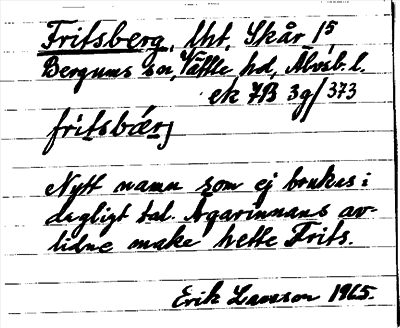 Fritsberg, lht, Skår 1⁵
Bergums sn, Vättle hd, Älvsb. l.
ek 7B 3g/373
fritsbærj
Nytt namn som ej brukas i
dagligt tal. Ägarinnans av-
lidne make hette Frits.
Erik 1965.